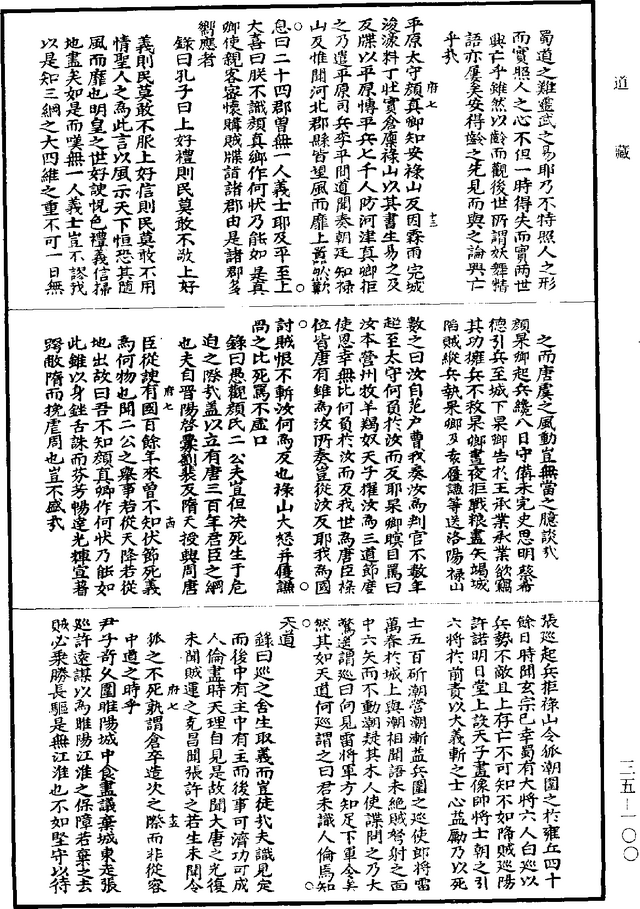 道藏
蜀道之難靈武之易耶乃不特照人之形
而實照人之心不但一時得失而實兩世
興亡乎雖然以齡而觀後世所謂妖舞情
語亦屢矣安得齡之先見而與之論興亡
乎哉
府七 十三
平原太守顏真卿知安祿山反因霖雨完城
浚濠料丁壯實倉廩祿山以其書生易之及
反牒以平原博平兵七千人防河津真卿拒
之乃遣平原司兵李平間道聞奏朝廷知祿
山反惟聞河北郡縣皆望風而靡上然歎
息曰二十四郡曾無一人義士耶及平至上
大喜曰朕不識顏真卿作何狀乃能如是真
卿使親客密懷購賊牒詣諸郡由是諸郡多
響應者
錄曰孔子曰上好禮則民莫敢不敬上好
義則民莫敢不服上好信則民莫敢不用
情聖人之為此言以風示天下恒恐其隨
風而靡也明皇之世好諛悅色禮義信掃
地盡矣如是而嘆無一人義士豈不謬哉
以是知三綱之大四維之重不可一日無
之而唐虞之風動豈無當之臆談哉
顏杲卿起兵纔八日守備未完史思明蔡希
德引兵至城下杲卿告於王承業承業欲竊
其功擁兵不救杲卿晝夜拒戰粮盡矢竭城
陷賊縱兵執杲卿及袁履謙等送洛陽祿山
數之曰汝自范戶曹我奏汝為判官不數年
超至太守何負於汝而反耶杲卿瞋目罵曰
汝本營州牧羊羯奴天子擢汝為三道節度
使恩幸無比何負於汝而反我世為唐臣祿
位皆唐有雖為汝所奏豈從汝反耶我為國
討賊恨不斬汝何為反也祿山大怒并履謙
咼之比死罵不虛口
錄曰愚觀顏氏二公夫豈但決死生于危
迫之際哉蓋以立有唐三百年君臣之綱
也夫自晉陽啟釁劉裴及隋天授興周唐
府七 十四
臣從諛有國百餘年來曾不知伏節死義
為何物也聞二公之舉事若從天降若從
地出故曰吾不知顏真卿作何狀乃能如
此雖以身銼舌誅而芬芳暢達光輝宣著
散隋而挽虐周也豈不盛哉
張巡起兵拒祿山令狐潮圍之於雍丘四十
餘日時聞玄宗已幸蜀有大將六人白巡以
兵勢不敵且上存亡不可知不如降賊巡陽
許諾明日堂上設天子畫像帥將士朝之引
六將於前責以大義斬之士心益勵乃以死
士五百斫潮營潮漸益兵圍之巡使郎將雷
萬春於城上與潮相聞語未絕賊弩射之面
中六矢而不動潮疑其木人使諜問之乃大
驚遙謂巡曰向見雷將軍方知足下軍令矣
然其如天道何巡謂之曰君未識人倫焉知
天道
錄曰巡之舍生取義而豈徒哉夫識見定
而後中有主中有主而後事可濟功可成
人倫盡時天理自見是故聞大唐之光復
未聞賊運之克昌聞張許之若生未聞令
府七 十五
狐之不死孰謂倉卒造次之際而非從容
中道之時乎
尹子奇久圍睢陽城中食盡議棄城東走張
巡許遠謀以為睢陽江淮之保障若棄之去
賊必乘勝長驅是無江淮也不如堅守以待
三五—一〇〇